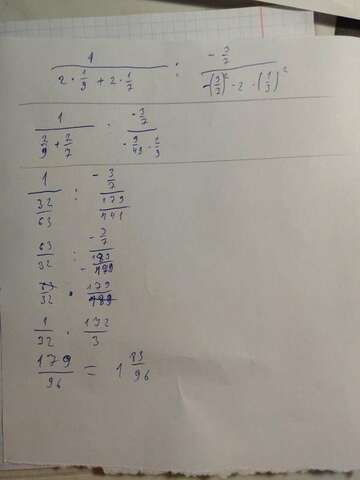 1 / (2 · 1/9 + 2 · 1/7) : (- 3/7) / (-(3/7)² - 2 · (1/3)²)
1 / (2/9 + 2/7) · (- 3/7) / (- 9/49 · 1/9)
1 / (32/63) : (- 3/7) / (179/441)
63/32 : (- 3/7) /
63/32 · 179/189
1/32 · 172/3
179/96 = 1 83/96